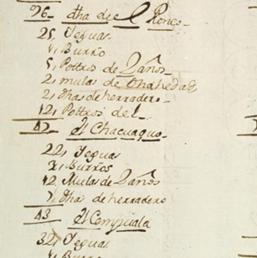 96- dha de el Ronco
25, Yeguas
1, Burro
5, Potros de 2 años
2, mulas de dha hedad
2, dhas de herradero
12, Potros de
47- El Chacuaquo
22, Yeguas
3, Burros
12, Mulas de 2 años
7, dhas de herradero
43- El Compuala
32, Yeguas
Burro